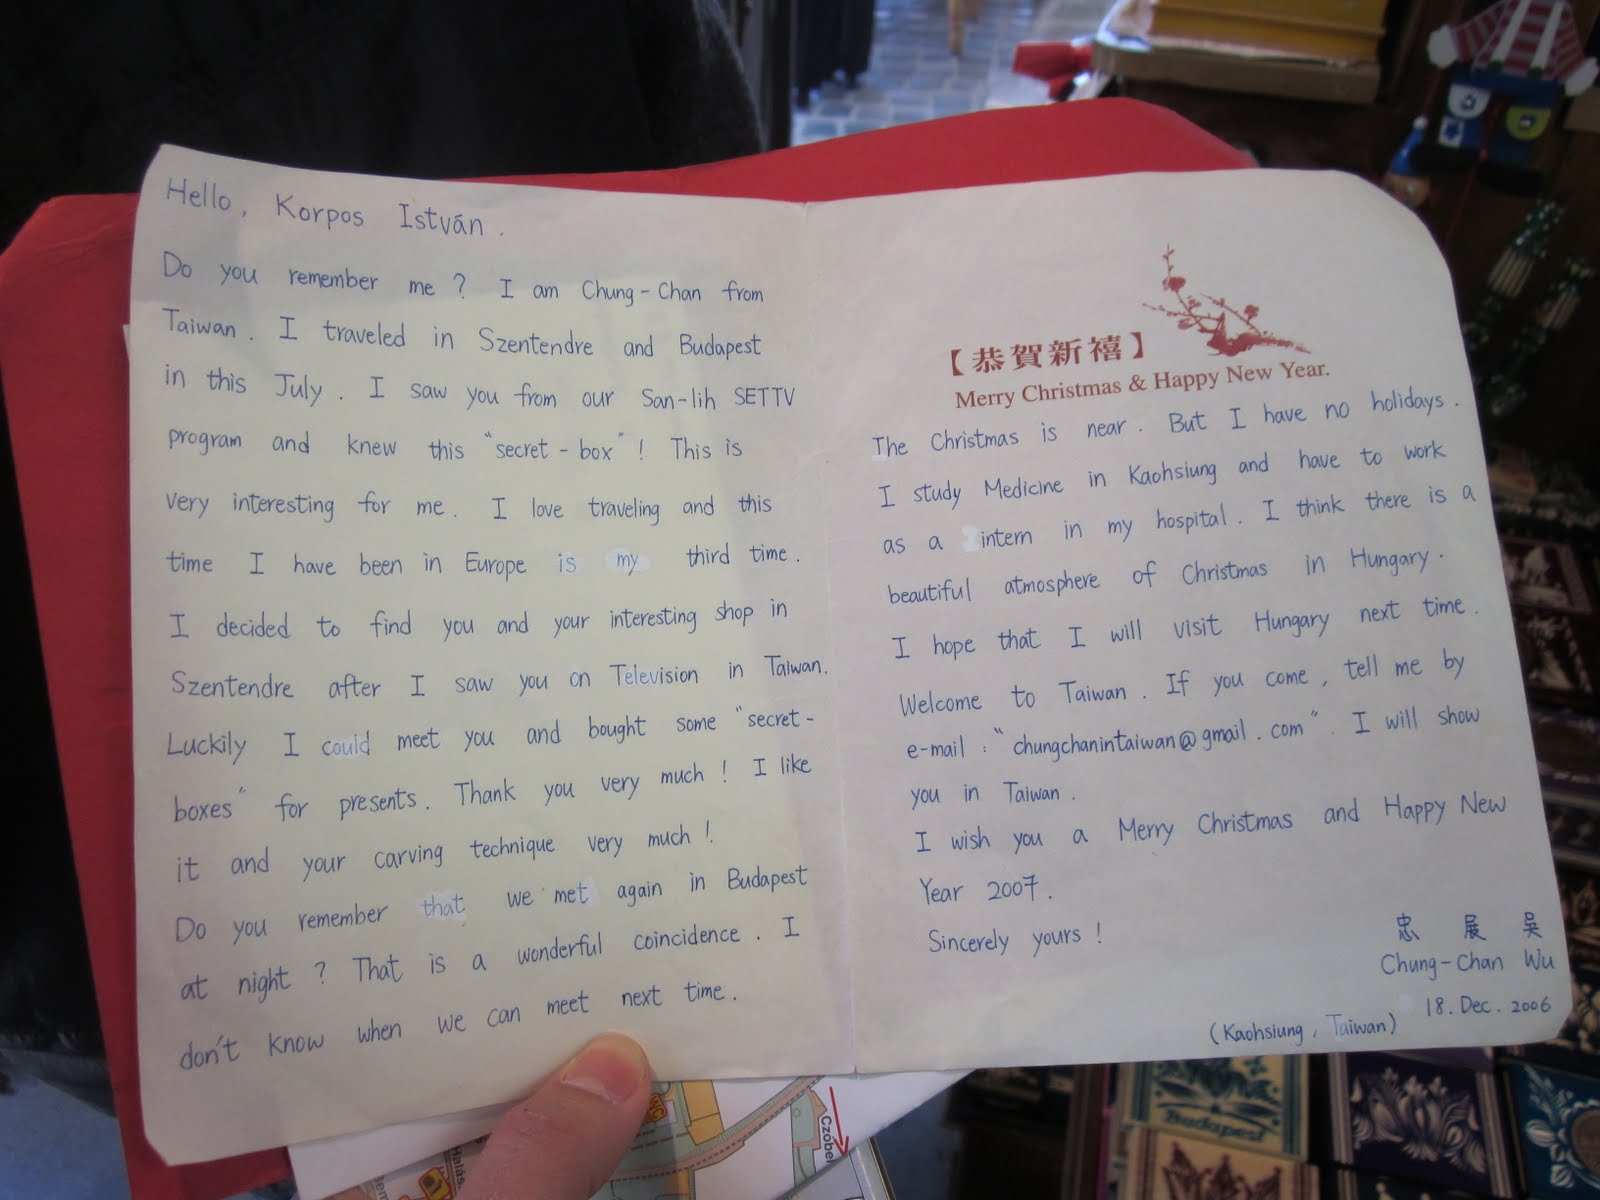 Hello, Korpos István.
Do you remember me ? I am Chung-Chan from
Taiwan. I traveled in Szentendre and Budapest
in this July. I saw you from our San-lih SETTV
program and knew this "secret-box"! This is
very interesting for me. I love traveling and this
time I have been in Europe is my third time.
I decided to find you and your interesting shop in
Szentendre after I saw you on Television in Taiwan.
Luckily I could meet you and bought some "secret-
boxes" for presents. Thank you very much! I like
it and your carving technique very much!
Do you remember that we met again in Budapest
at night ? That is a wonderful coincidence. I
don't know when we can meet next time.
【恭賀新禧】
Merry Christmas & Happy New Year.
The Christmas is near. But I have no holidays.
I study Medicine in Kaohsiung and have to work
as a intern in my hospital. I think there is a
beautiful atmosphere of Christmas in Hungary.
I hope that I will visit Hungary next time.
Welcome to Taiwan. If you come, tell me by
e-mail : "chungchanintaiwan@gmail.com". I will show
you in Taiwan.
I wish you a Merry Christmas and Happy New
Year 2007.
Sincerely yours!
忠 展 吳
Chung-Chan Wu
18. Dec. 2006
(Kaohsiung, Taiwan)
Czóbel
Halás
Budapest